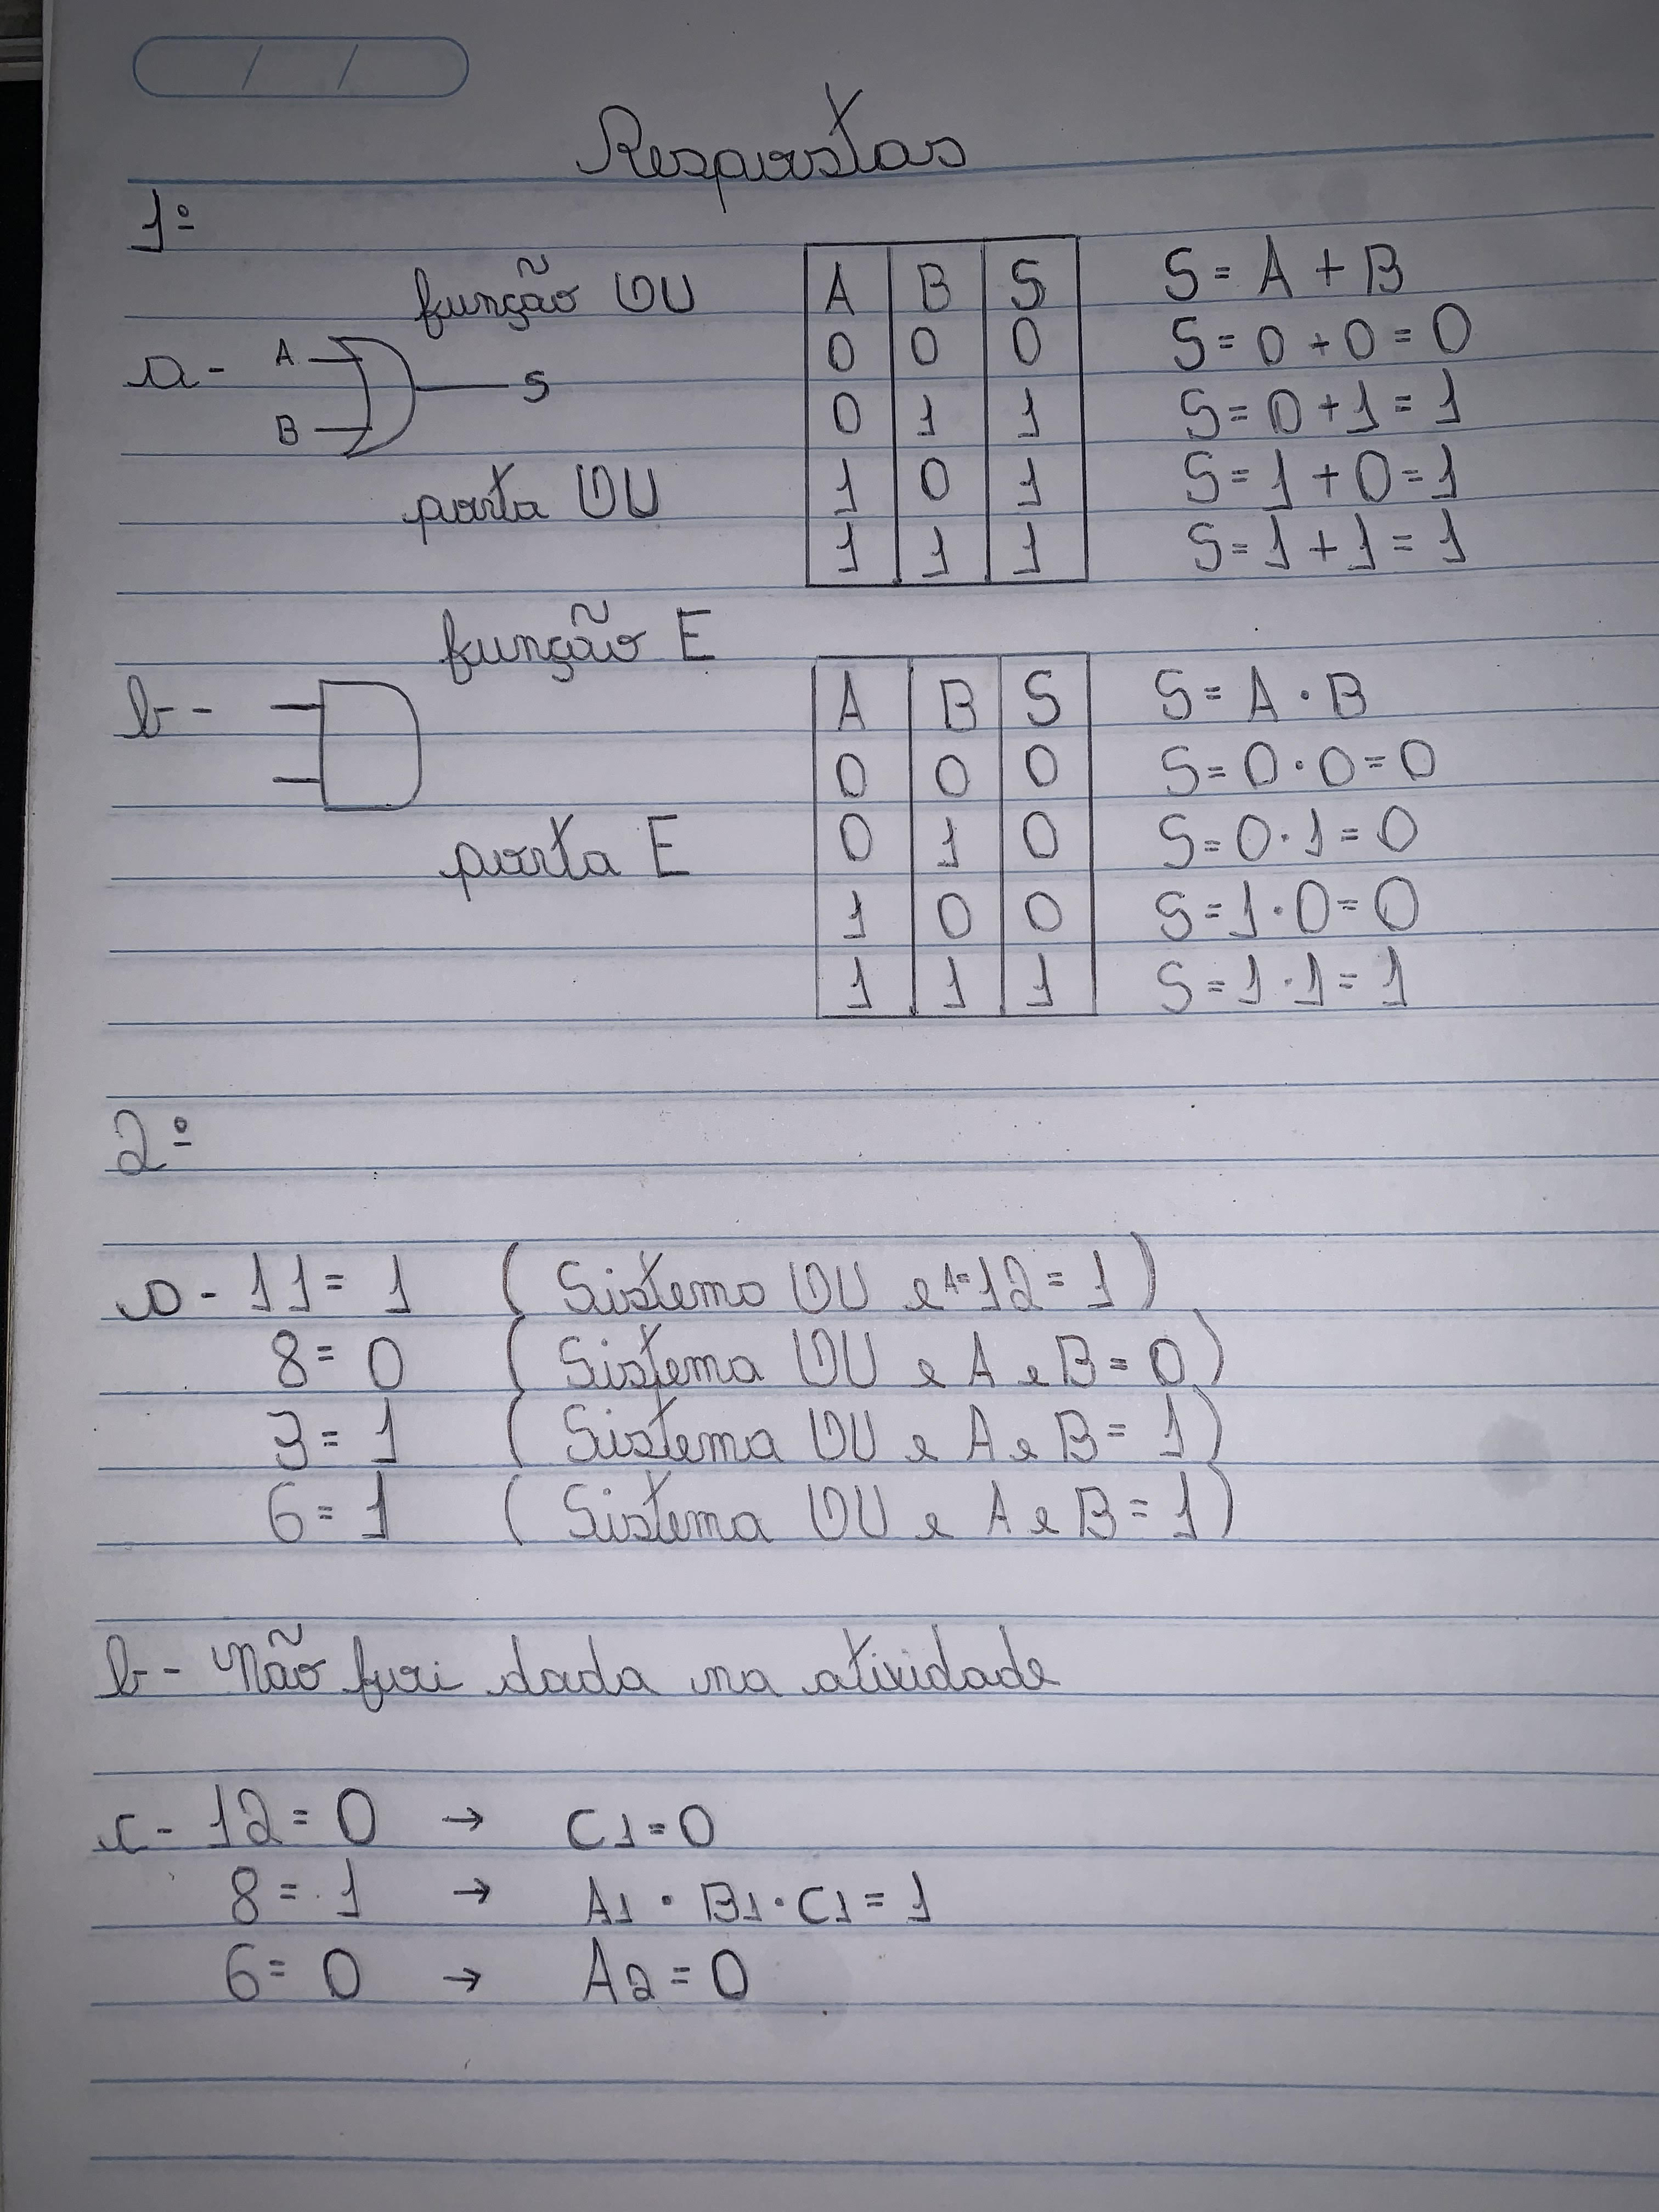 Respostas
1º
função OU
a - A B S
porta OU
A B S
0 0 0
0 1 1
1 0 1
1 1 1
S = A + B
S = 0 + 0 = 0
S = 0 + 1 = 1
S = 1 + 0 = 1
S = 1 + 1 = 1
função E
b -
porta E
A B S
0 0 0
0 1 0
1 0 0
1 1 1
S = A · B
S = 0 · 0 = 0
S = 0 · 1 = 0
S = 1 · 0 = 0
S = 1 · 1 = 1
2º
a - 11 = 1 ( Sistema OU e 12 = 1 )
8 = 0 ( Sistema OU e A e B = 0 )
3 = 1 ( Sistema OU e A e B = 1 )
6 = 1 ( Sistema OU e A e B = 1 )
b - Não foi dada na atividade
c - 12 = 0 → C1 = 0
8 = 1 → A1 · B1 · C1 = 1
6 = 0 → A2 = 0